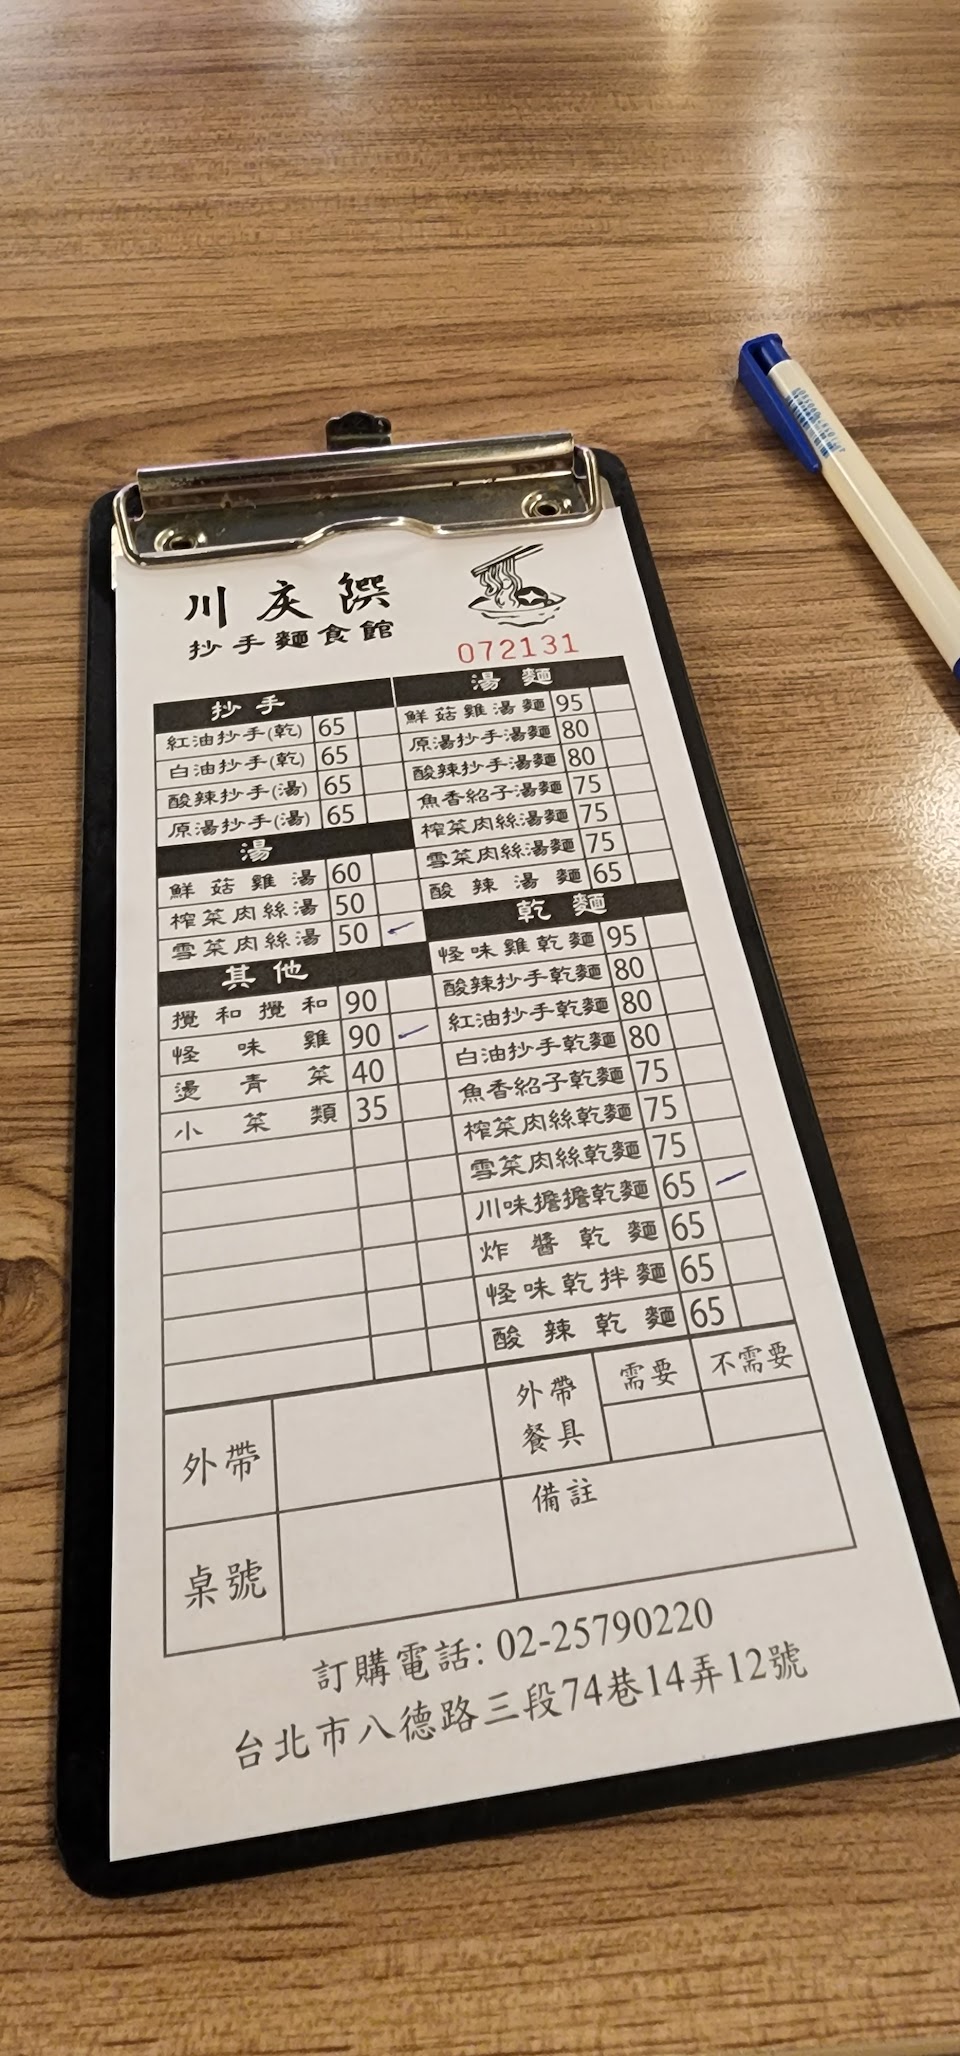 川庆饌
抄手麵食館
072131
抄手
紅油抄手(乾) 65
白油抄手(乾) 65
酸辣抄手(湯) 65
原湯抄手(湯) 65
湯
鮮菇雞湯 60
榨菜肉絲湯 50
雪菜肉絲湯 50
其他
攪和攪和 90
怪味雞 90
燙青菜 40
小菜類 35
湯麵
鮮菇雞湯麵 95
原湯抄手湯麵 80
酸辣抄手湯麵 80
魚香紹子湯麵 75
榨菜肉絲湯麵 75
雪菜肉絲湯麵 75
酸辣湯麵 65
乾麵
怪味雞乾麵 95
酸辣抄手乾麵 80
紅油抄手乾麵 80
白油抄手乾麵 80
魚香紹子乾麵 75
榨菜肉絲乾麵 75
雪菜肉絲乾麵 75
川味擔擔乾麵 65
炸醬乾麵 65
怪味乾拌麵 65
酸辣乾麵 65
外帶
外帶餐具
需要
不需要
桌號
備註
訂購電話: 02-25790220
台北市八德路三段74巷14弄12號